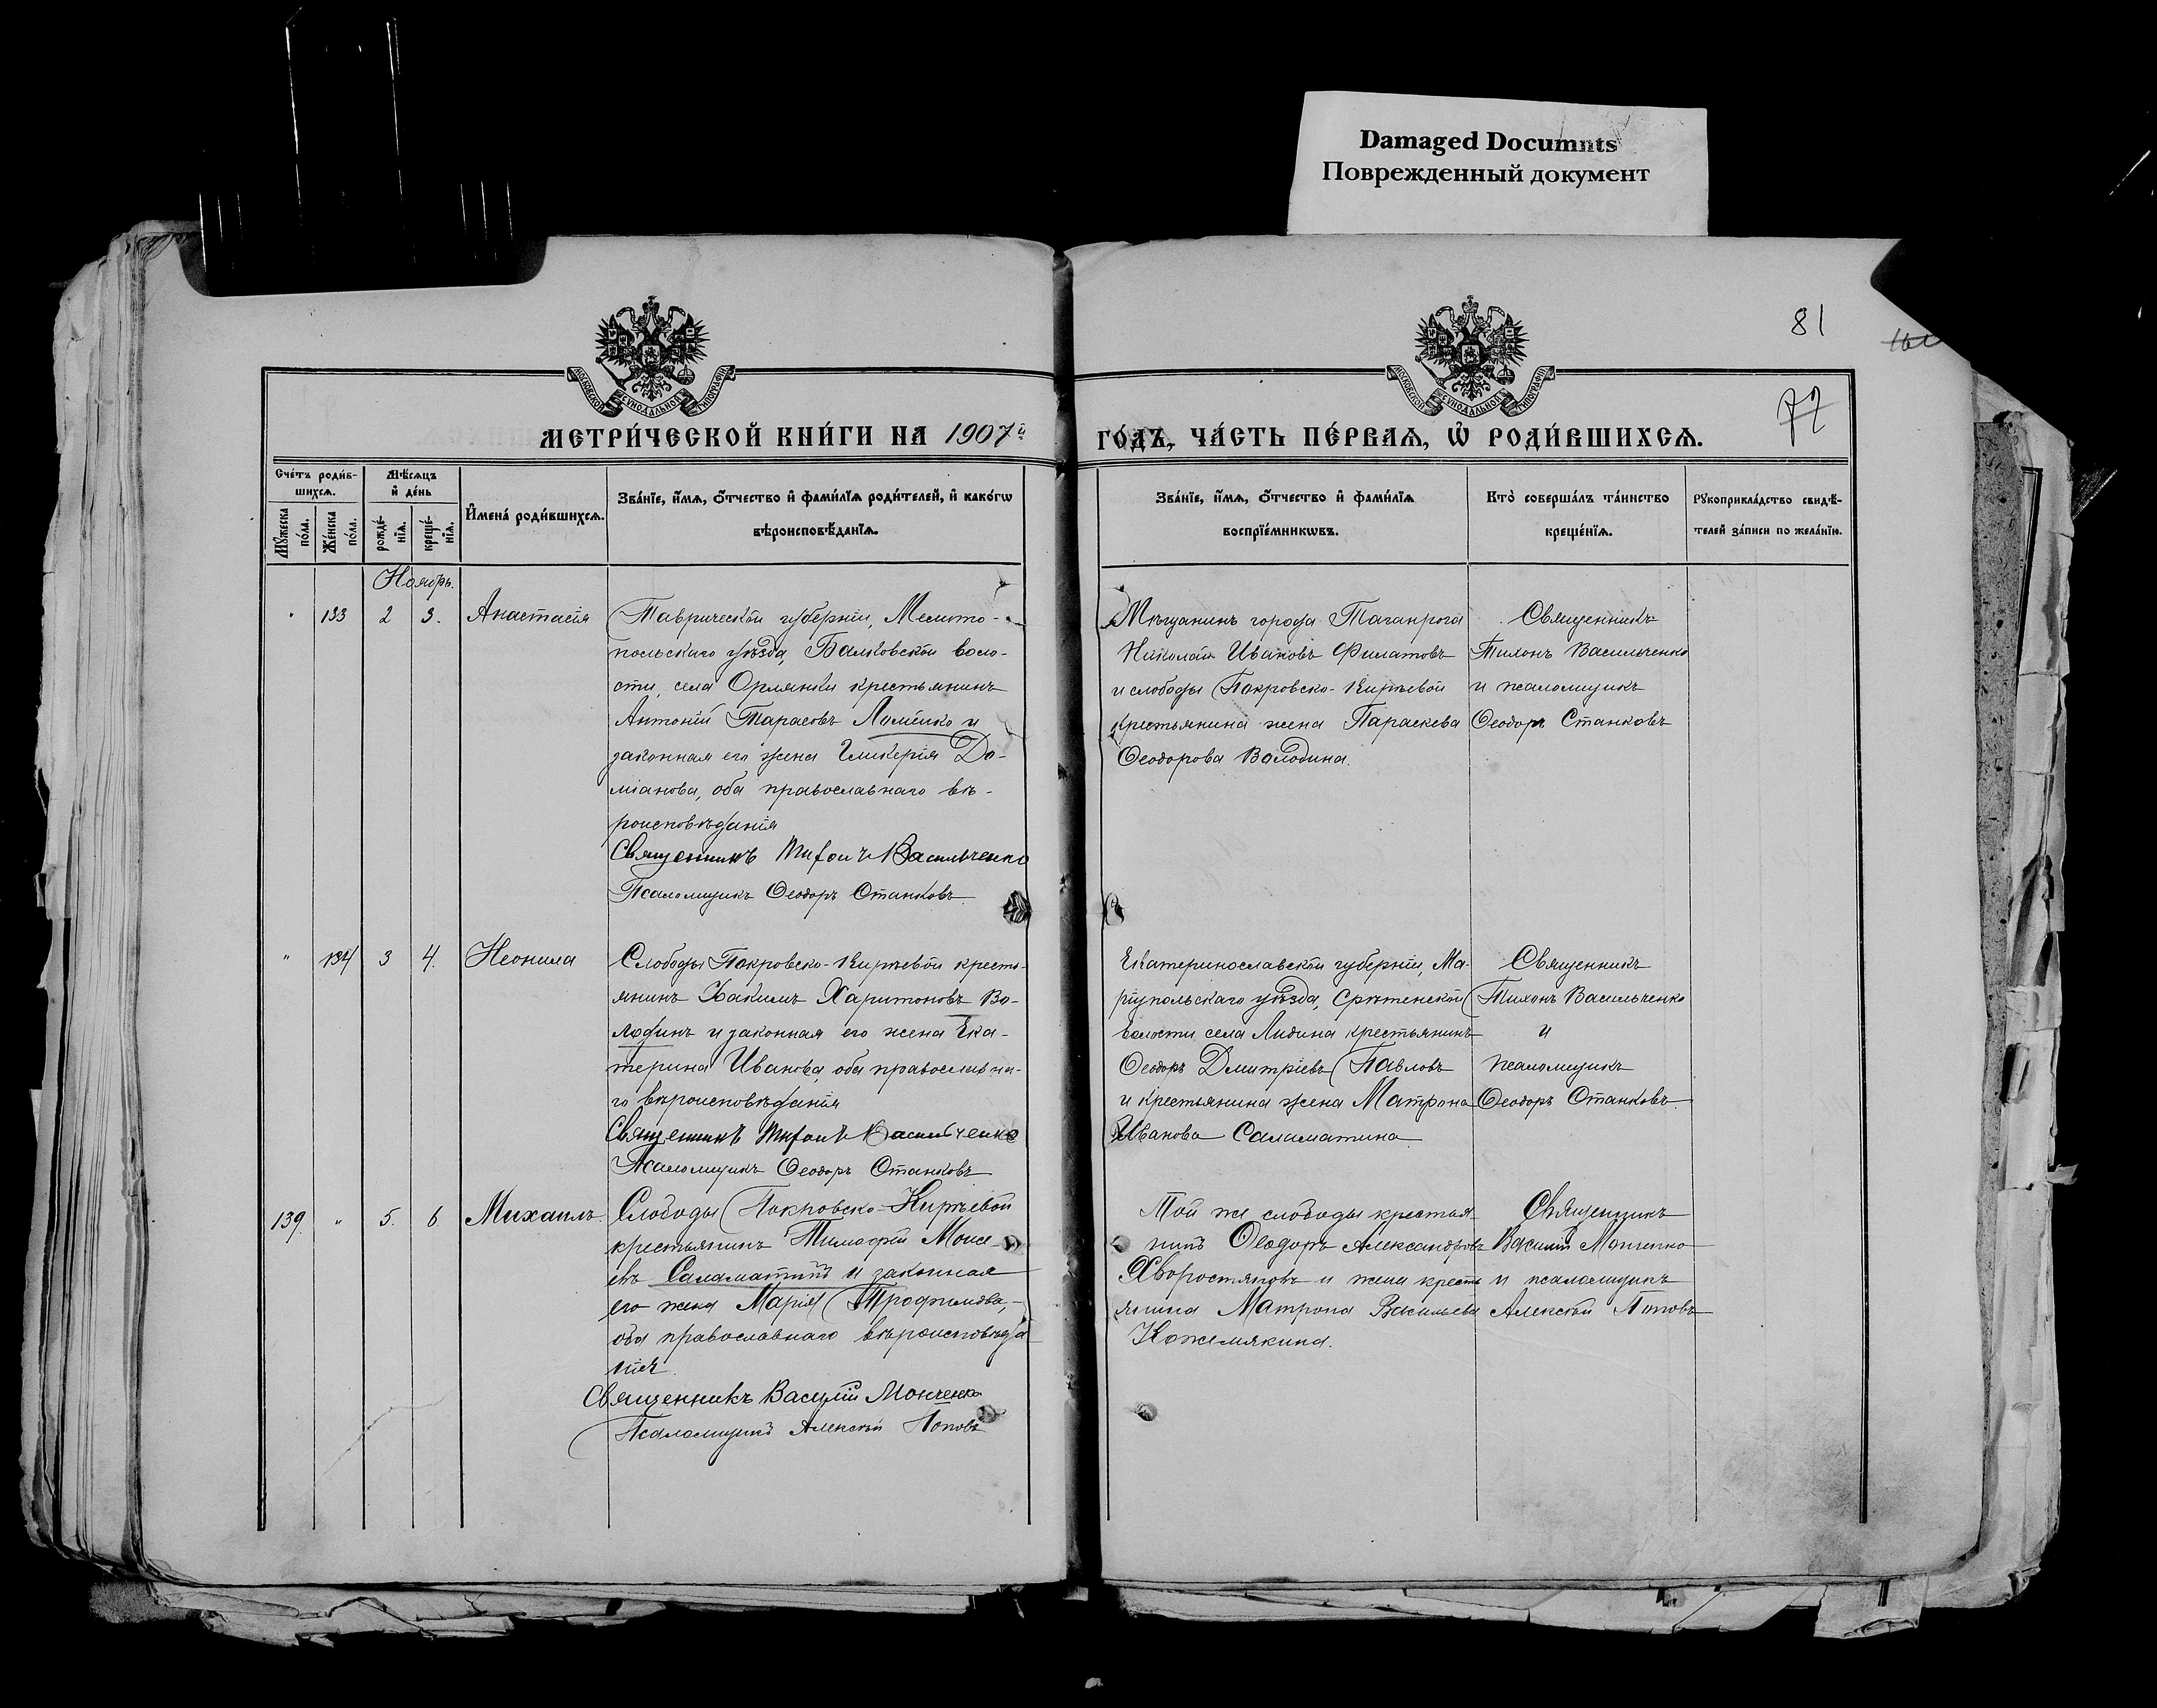 Damaged Documnts
Поврежденный документ
81
72
МОСКОВСКОЙ СУНОДАЛЬНОЙ ТИПОГРАФІИ
МОСКОВСКОЙ СУНОДАЛЬНОЙ ТИПОГРАФІИ
МЕТРИ́ЧЕСКОЙ КНИ́ГИ НА 1907й
ГО́ДЪ, ЧА́СТЬ ПЕ́РВАѦ, Ѡ҆ РОДИ́ВШИХСѦ.
Сче́тъ роди́в-
шихсѧ.
Мѣ́сѧцъ
и҆ де́нь
Мꙋ́жеска
по́ла.
Же́нска
по́ла.
рожде́-
нїѧ.
креще́-
нїѧ.
И҆мена̀ роди́вшихсѧ.
Зва́нїе, и҆́мѧ, ѻ҆́тчество и҆ фами́лїѧ роди́телей, и҆ како́гѡ
вѣроисповѣ́данїѧ.
Зва́нїе, и҆́мѧ, ѻ҆́тчество и҆ фами́лїѧ
воспрїе́мникѡвъ.
Кто̀ соверша́лъ та́инство
креще́нїѧ.
Рꙋкоприкла́дство свидѣ́-
телей за́писи по жела́нїю.
Ноябрь.
" 133 2 3. Анастасія
Таврической губерніи, Мелито-
польскаго уѣзда, Балковской воло-
сти, села Орлянки крестьянинъ
Антоній Тарасовъ Ломейко и
законная его жена Гликерія Да-
міанова, оба православнаго вѣ-
роисповѣданія
Священникъ Тихонъ Васильченко
Псаломщикъ Ѳеодоръ Станковъ
Мѣщанинъ города Таганрога
Николай Ивановъ Филатовъ
и слободы Покровско-Кирѣевой
крестьянина жена Параскева
Ѳеодорова Володина.
Священникъ
Тихонъ Васильченко
и псаломщикъ
Ѳеодоръ Станковъ
" 134 3 4. Неонила
Слободы Покровско-Кирѣевой кресть-
янинъ Іоакимъ Харитоновъ Во-
лодинъ и законная его жена Ека-
терина Иванова, оба православна-
го вѣроисповѣданія
Священникъ Тихонъ Васильченко
Псаломщикъ Ѳеодоръ Станковъ
Екатеринославской губерніи, Ма-
ріупольскаго уѣзда, Срѣтенской
волости, села Лидина крестьянинъ
Ѳеодоръ Дмитріевъ Павловъ
и крестьянина жена Матрона
Иванова Саламатина
Священникъ
Тихонъ Васильченко
и
псаломщикъ
Ѳеодоръ Станковъ
139. " 5. 6. Михаилъ
Слободы Покровско-Кирѣевой
крестьянинъ Тимофей Моисе-
евъ Саламатинъ и законная
его жена Марія Трофимова,
оба православнаго вѣроисповѣда
нія
Священникъ Василій Монченко
Псаломщикъ Алексѣй Поповъ
Той же слободы крестья-
нинъ Ѳеодоръ Александровъ
Хворостяновъ и жена кресть
янина Матрона Васильева
Кожемякина.
Священникъ
Василій Монченко
и псаломщикъ
Алексѣй Поповъ